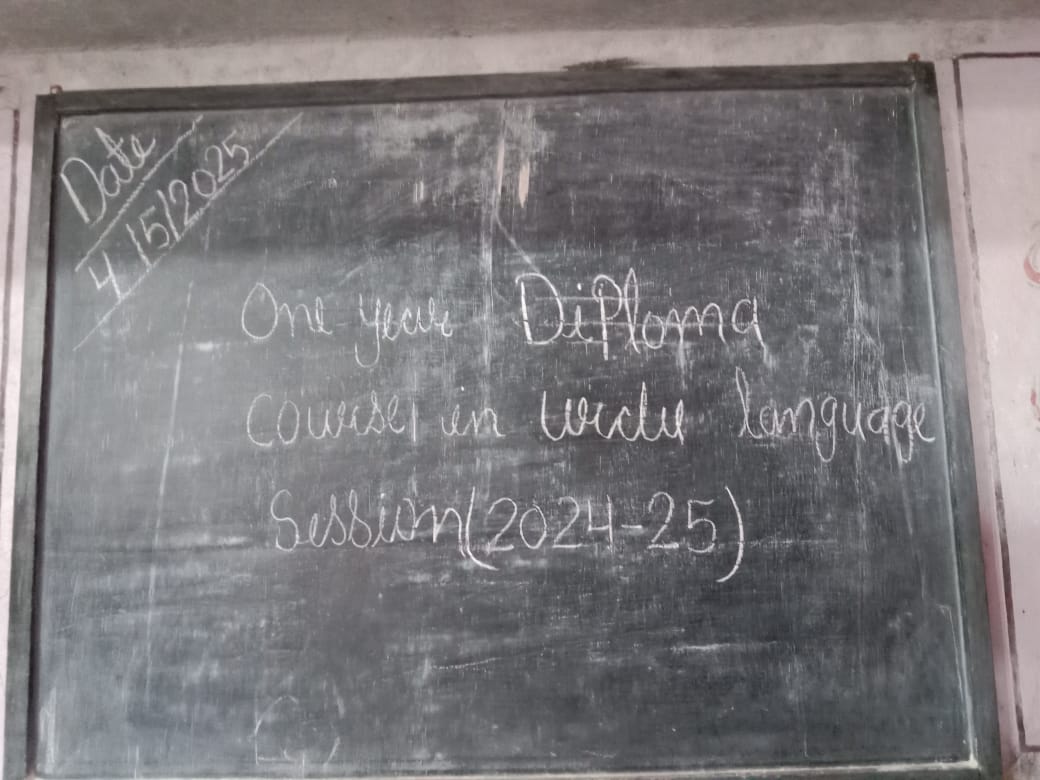 Date
4/5/2025
One year Diploma
course in urdu language
Session (2024-25)